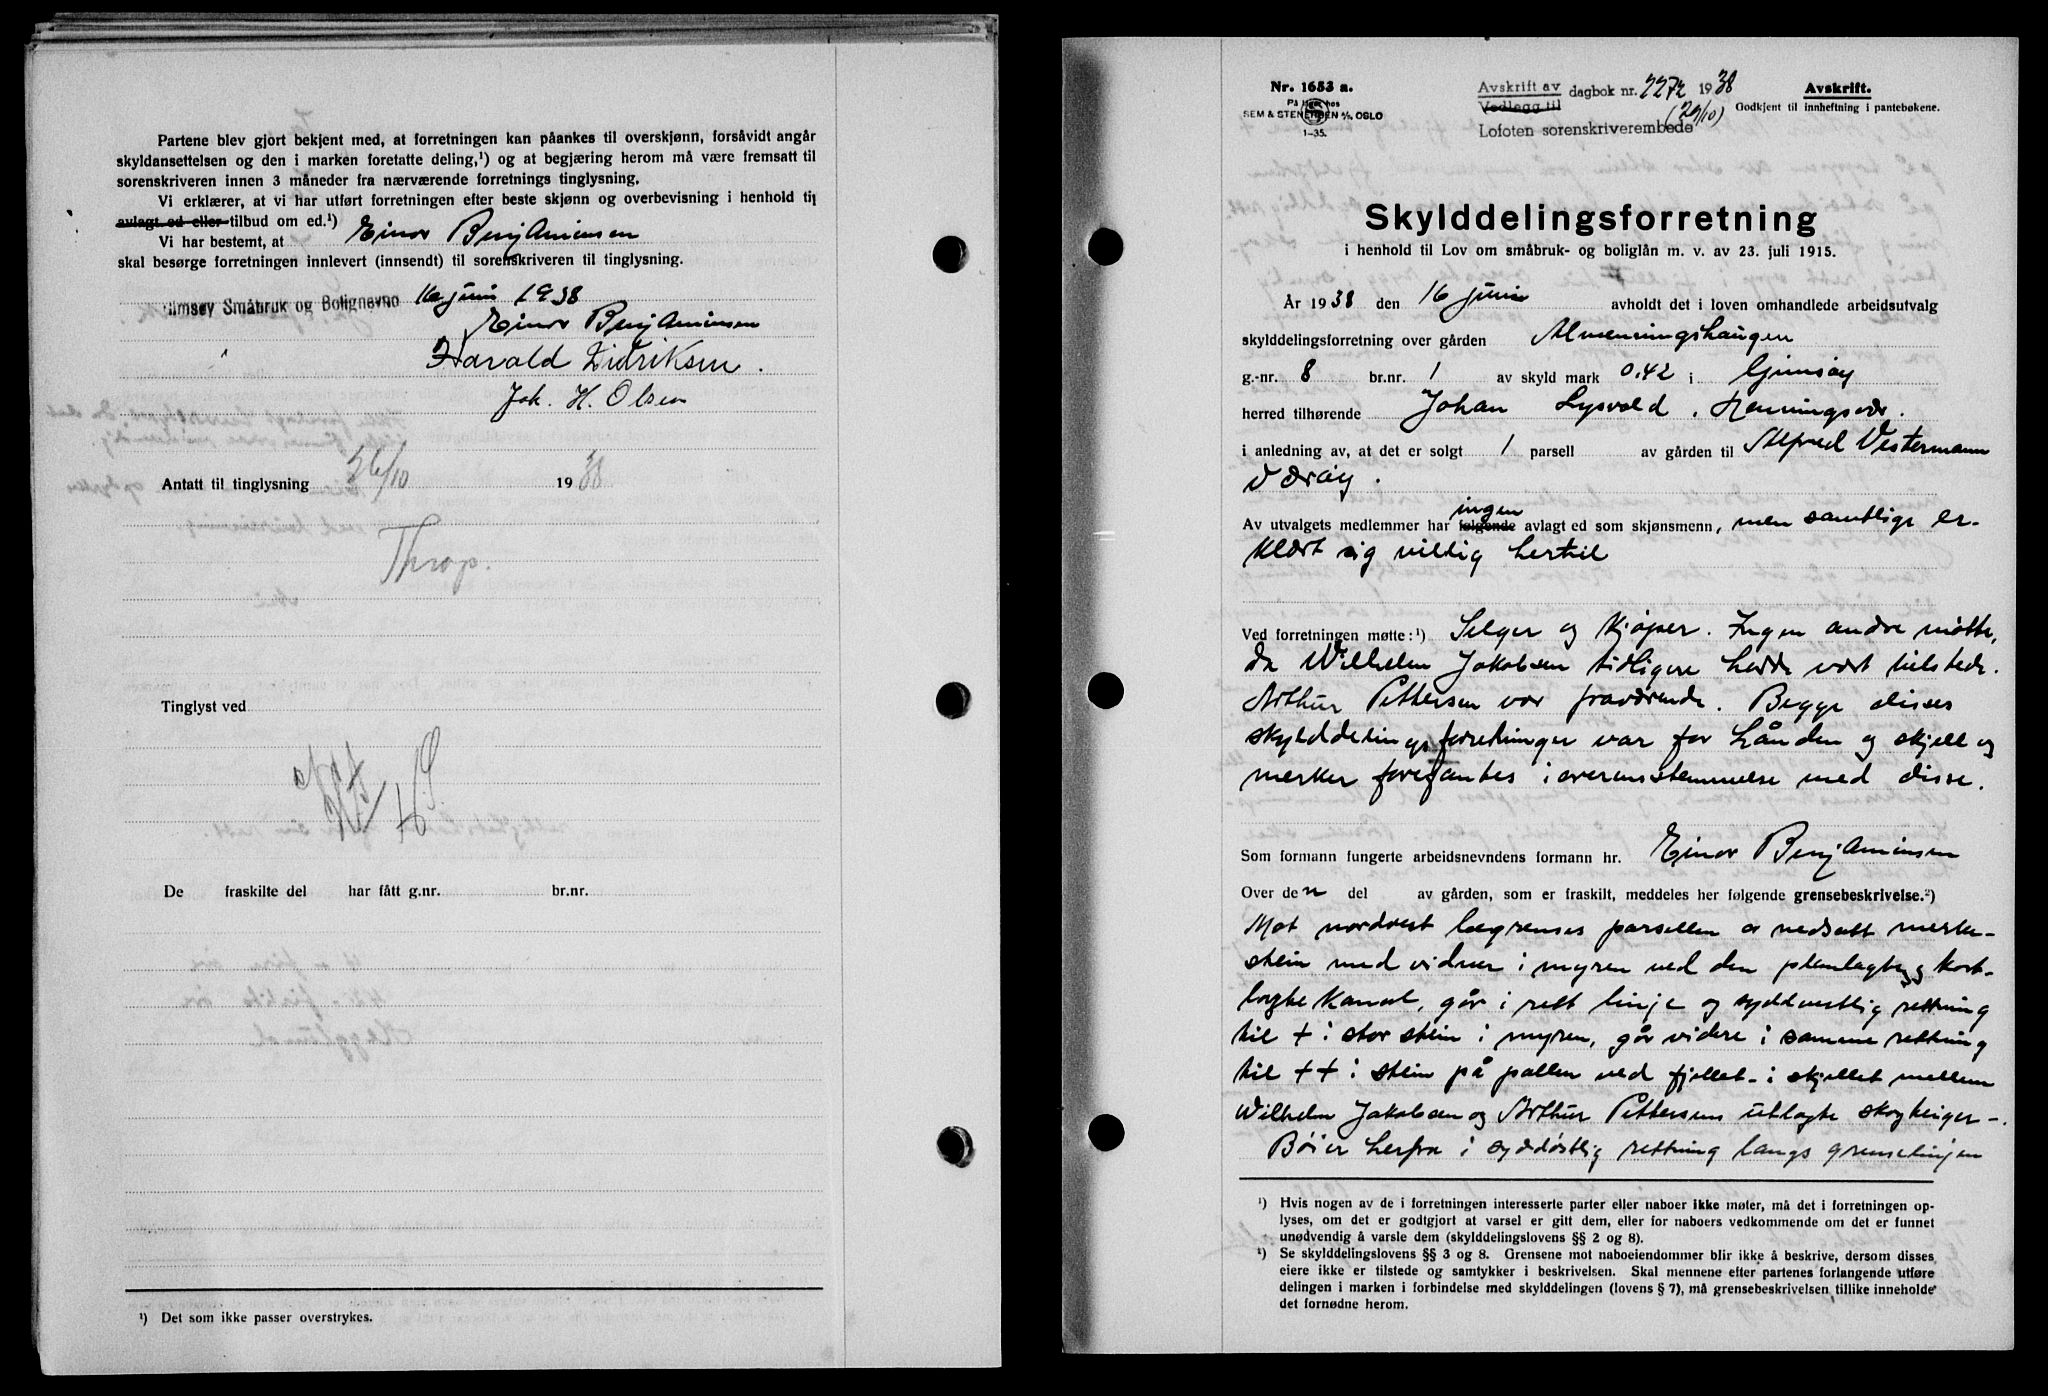 Partene blev gjort bekjent med, at forretningen kan påankes til overskjønn, forsåvidt angår
skyldansettelsen og den i marken foretatte deling,¹) og at begjæring herom må være fremsatt til
sorenskriveren innen 3 måneder fra nærværende forretnings tinglysning.
Vi erklærer, at vi har utført forretningen efter beste skjønn og overbevisning i henhold til
avlagt ed eller tilbud om ed.¹)
Vi har bestemt, at Einar Benjaminsen
skal besørge forretningen innlevert (innsendt) til sorenskriveren til tinglysning.
Gimsøy Småbruk og Bolignevnd 16 juni 1938
Einar Benjaminsen
Harald Didriksen.
Joh. H. Olsen
Antatt til tinglysning 26/10 1938
Throp.
Tinglyst ved
De fraskilte del har fått g.nr. br.nr.
¹) Det som ikke passer overstrykes.
Nr. 1653 a.
På lager hos
SEM & STENERSEN A/S, OSLO
1-35.
Avskrift av
Vedlegg til
dagbok nr. 2272 1938
(26/10)
Lofoten sorenskriverembede
Avskrift.
Godkjent til innheftning i pantebøkene.
Skylddelingsforretning
i henhold til Lov om småbruk- og boliglån m. v. av 23. juli 1915.
År 1938 den 16 juni avholdt det i loven omhandlede arbeidsutvalg
skylddelingsforretning over gården Almenningshaugen
g.-nr. 8 br.nr. 1 av skyld mark 0.42 i Gimsøy
herred tilhørende Johan Lysvold, Henningsvær.
i anledning av, at det er solgt 1 parsell av gården til Alfred Vestermann
Værøy.
ingen
Av utvalgets medlemmer har følgende avlagt ed som skjønsmenn, men samtlige er-
klært sig villig hertil
Ved forretningen møtte:¹) Selger og kjøper. Ingen andre møtte,
da Wilhelm Jakobsen tidligere hadde vært tilstede.
Arthur Pettersen var fraværende. Begge disses
skylddelingsforretninger var for hånden og skjell og
merker forefantes i overensstemmelse med disse.
Som formann fungerte arbeidsnevndens formann hr. Einar Benjaminsen
Over den del av gården, som er fraskilt, meddeles her følgende grensebeskrivelse.²)
Mot nordvest begrenses parsellen av nedsatt merke-
stein med vidner i myren ved den planlagte og kart-
lagte kanal, går i rett linje og syddvestlig rettning
til + i stor stein i myren, går videre i samme rettning
til ++ i stein på pallen ved fjellet i skjellet mellem
Wilhelm Jakobsen og Arthur Pettersens utlagte skogteiger-.
Bøier herfra i syddøstlig rettning langs grenselinjen
¹) Hvis nogen av de i forretningen interesserte parter eller naboer ikke møter, må det i forretningen op-
lyses, om det er godtgjort at varsel er gitt dem, eller for naboers vedkommende om det er funnet
unødvendig å varsle dem (skylddelingslovens §§ 2 og 8).
²) Se skylddelingslovens §§ 3 og 8. Grensene mot naboeiendommer blir ikke å beskrive, dersom disses
eiere ikke er tilstede og samtykker i beskrivelsen. Skal mennene efter partenes forlangende utføre
delingen i marken i forbindelse med skylddelingen (lovens § 7), må grensebeskrivelsen tillike inneholde
det fornødne herom.